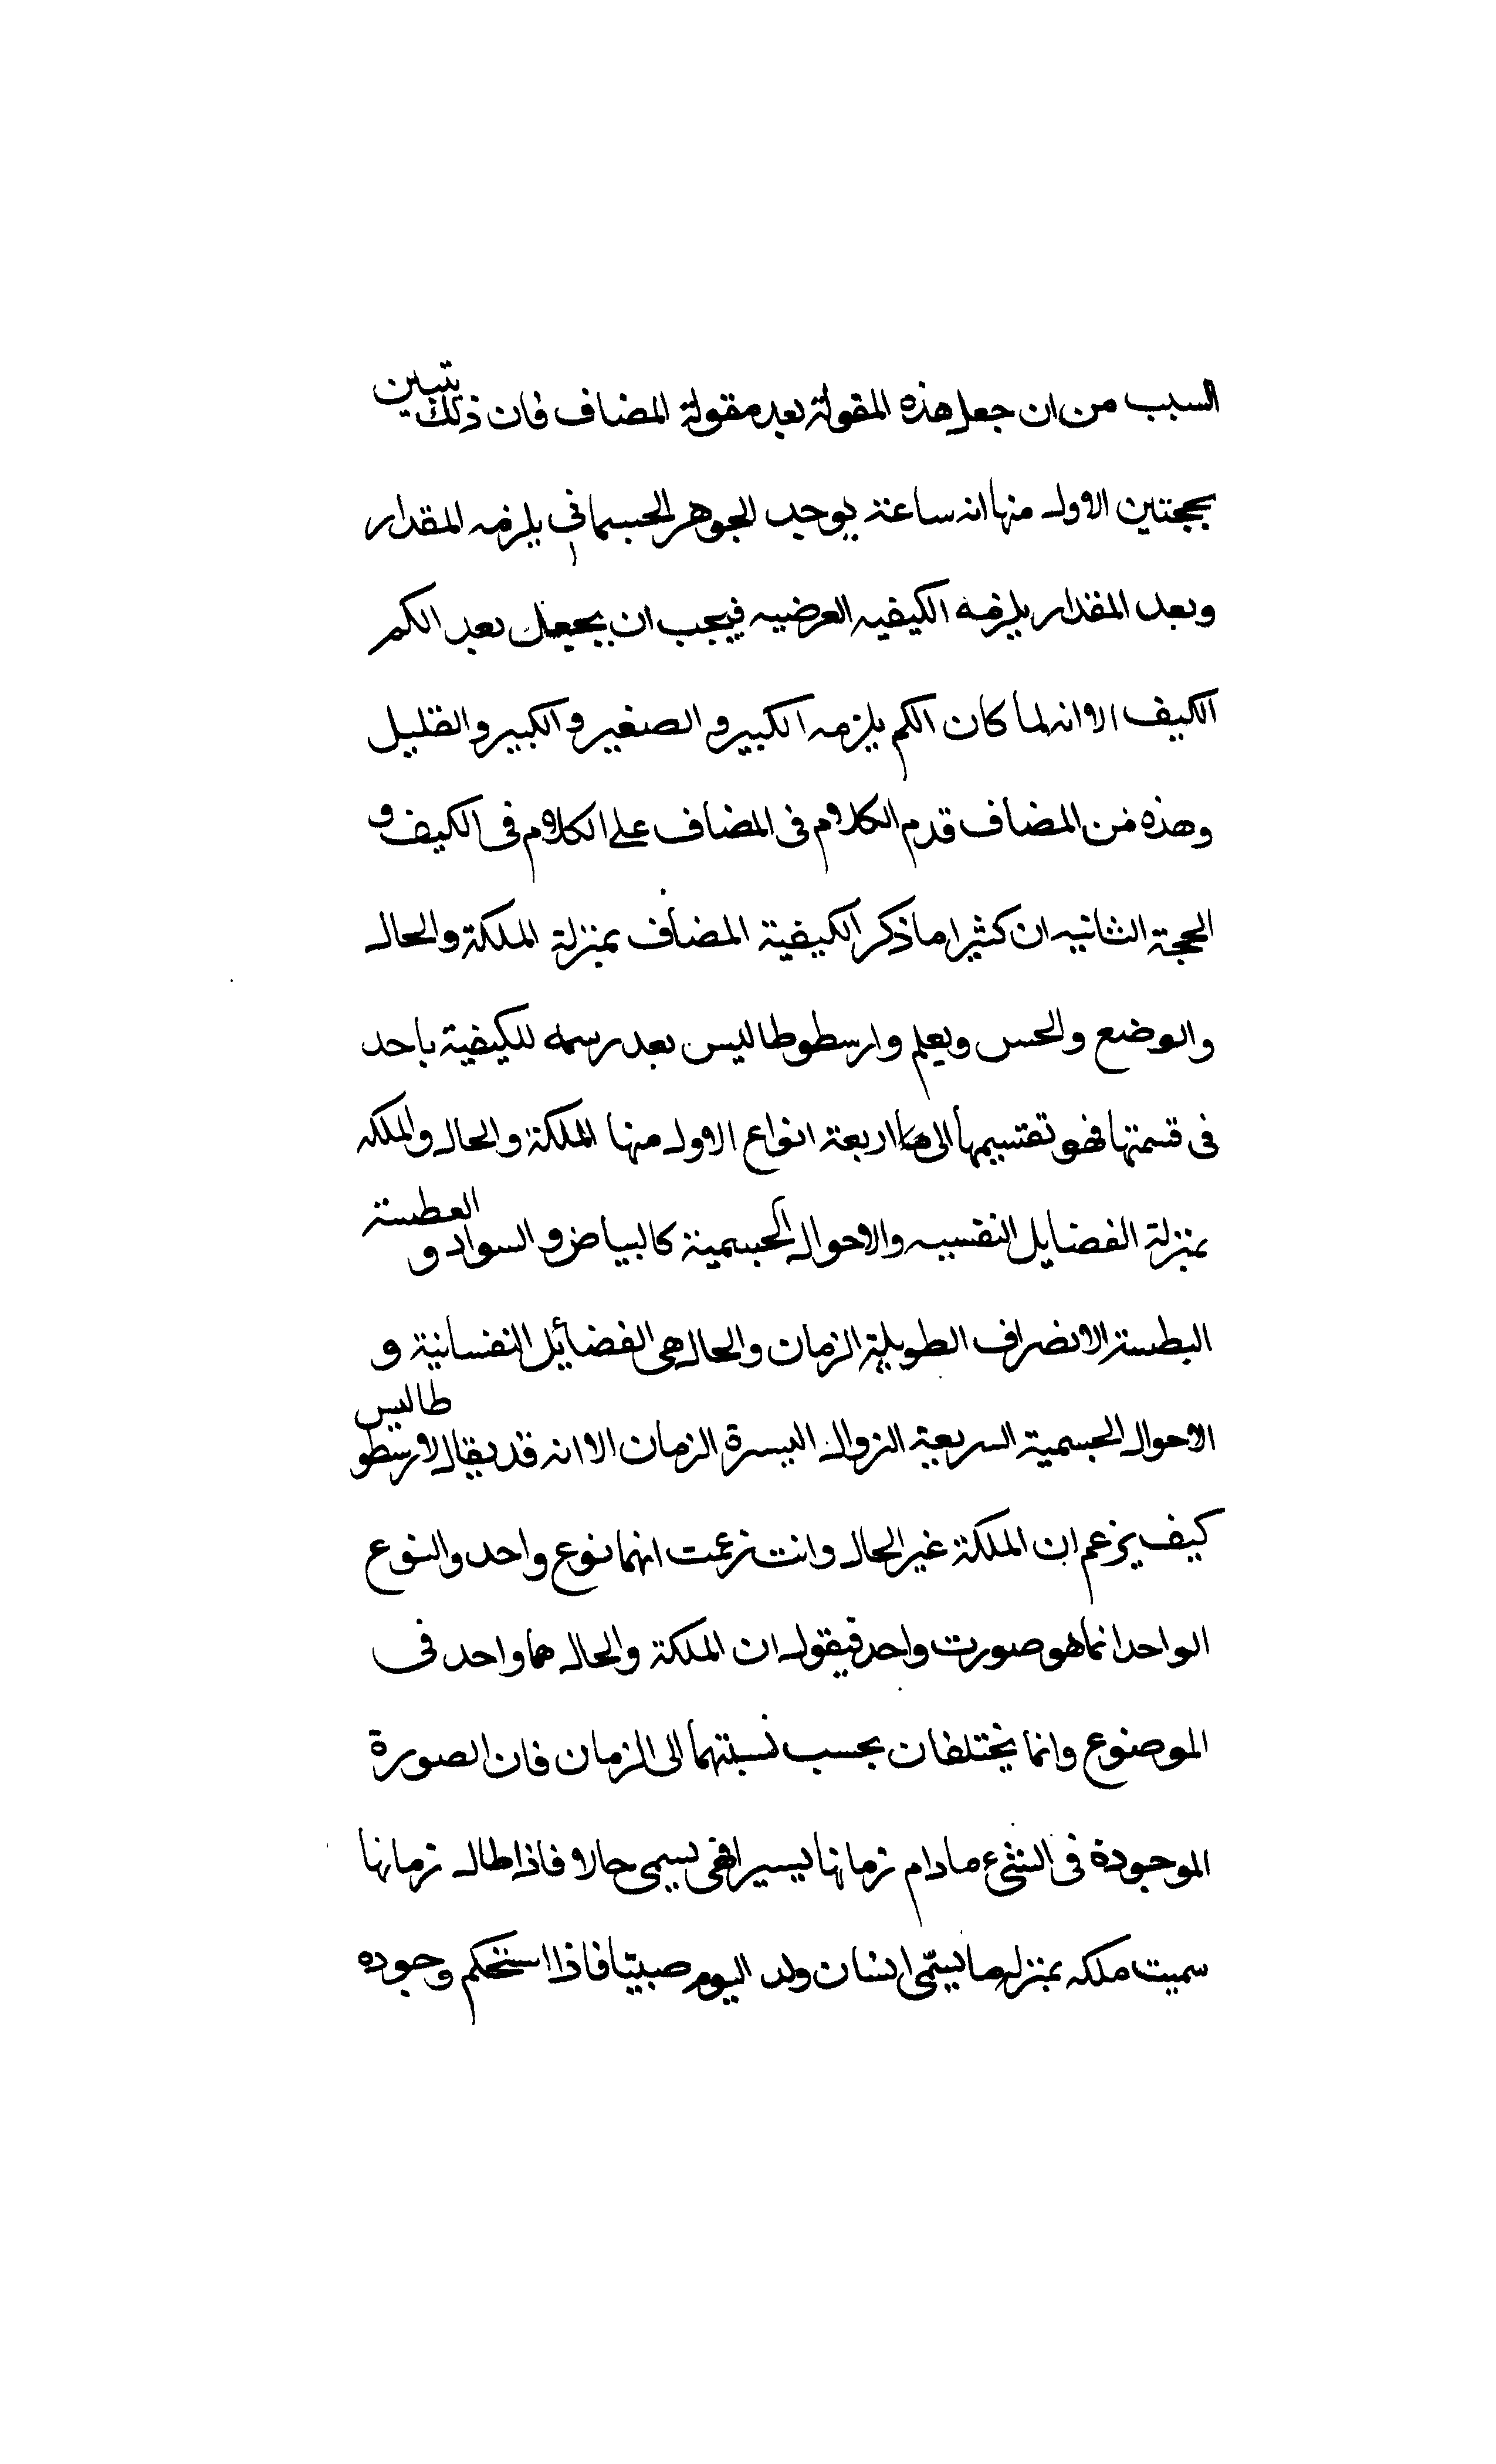 السبب من ان جعل هذه المقولة بعد مقولة المضاف فان ذلك يتبين
بحجتين الاولى منها انه ساعة يوجد الجوهر الجسمانى يلزمه المقدار
وبعد المقدار يلزمه الكيفيه العرضيه فيجب ان يجعل بعد الكم
الكيف الا وانه لما كان الكم يلزمه الكبير و الصغير و الكبير و القليل
وهذه من المضاف قدم الكلام فى المضاف على الكلام فى الكيف و
الحجة الثانيه ان كثيرا ما ذكر الكيفية المضاف بمنزلة الملكة والحال
والوضع والحس ويعلم وارسطوطاليس بعد رسمه للكيفية باحد
فى قسمتها فهو تقسيمها الى اربعة انواع الاول منها الملكة والحال والملكه
بمنزلة الفضايل النفسيه والاحوال الجسمية كالبياض و السواد و العطسة
البطسة الانصراف الطويلة الزمان والحال هى الفضائل النفسانية و
الاحوال الجسمية السريعة الزوال اليسرة الزمان الا انه قد يقال لارسطوطاليس
كيف يزعم ان الملكة غير الحال وانت زعمت انهما نوع واحد والنوع
الواحد انما هو صورت واحد فيقول ان الملكة والحال هما واحد فى
الموضوع وانما يختلفان بحسب نسبتهما الى الزمان فان الصورة
الموجودة فى الشىء ما دام زمانها يسيرا فهى يسمى حالا فاذا طال زمانها
سميت ملكه بمنزله ما يسمّى انسان ولد اليوم صبيّا فاذا استحكم وجوده